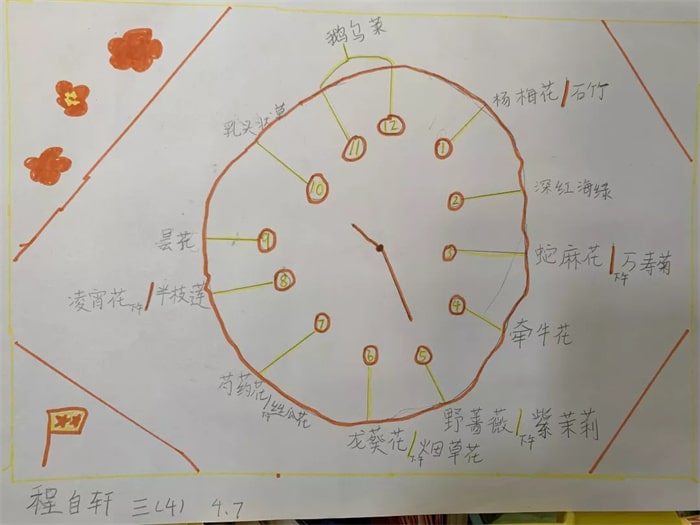 鹅乌菜
12
杨相花/石竹
1
深红海绿
2
蛇麻花/下午万寿菊
3
牵牛花
4
野蔷薇/下午紫茉莉
5
龙葵花/下午烟草花
6
芍药花/下午丝瓜花
7
凌宵花下午/半枝莲
8
昙花
9
乳头状草
10
11
程自轩 三(4) 4.7